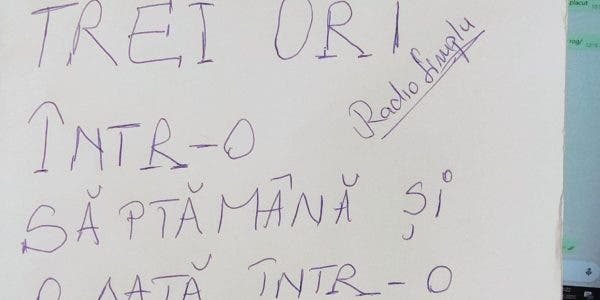 TREI ORI
Radio Simplu
ÎNTR-O
SĂPTĂMÂNĂ ȘI
O DATĂ ÎNTR-O
placut
rog/